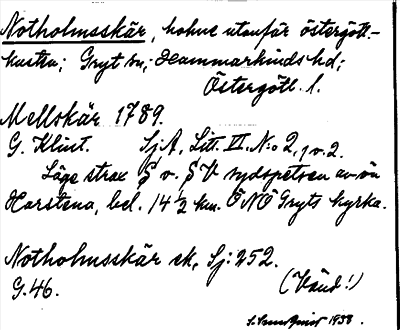 Notholmsskär, holme utanför östergöt-
kusten; Gryt sn; Hammarkinds hd;
Östergötl. l.
Mellskär 1789.
G. Klint. SjA, Litt. III. N:o 2, 1 o. 2.
Läge strax S o. SV sydspetsen av ön
Harstena, bel. 14 1/2 km. ÖNÖ Gryts kyrka.
Notholmsskär sk, Sj: 252.
G. 46. (Vänd!)
1938.